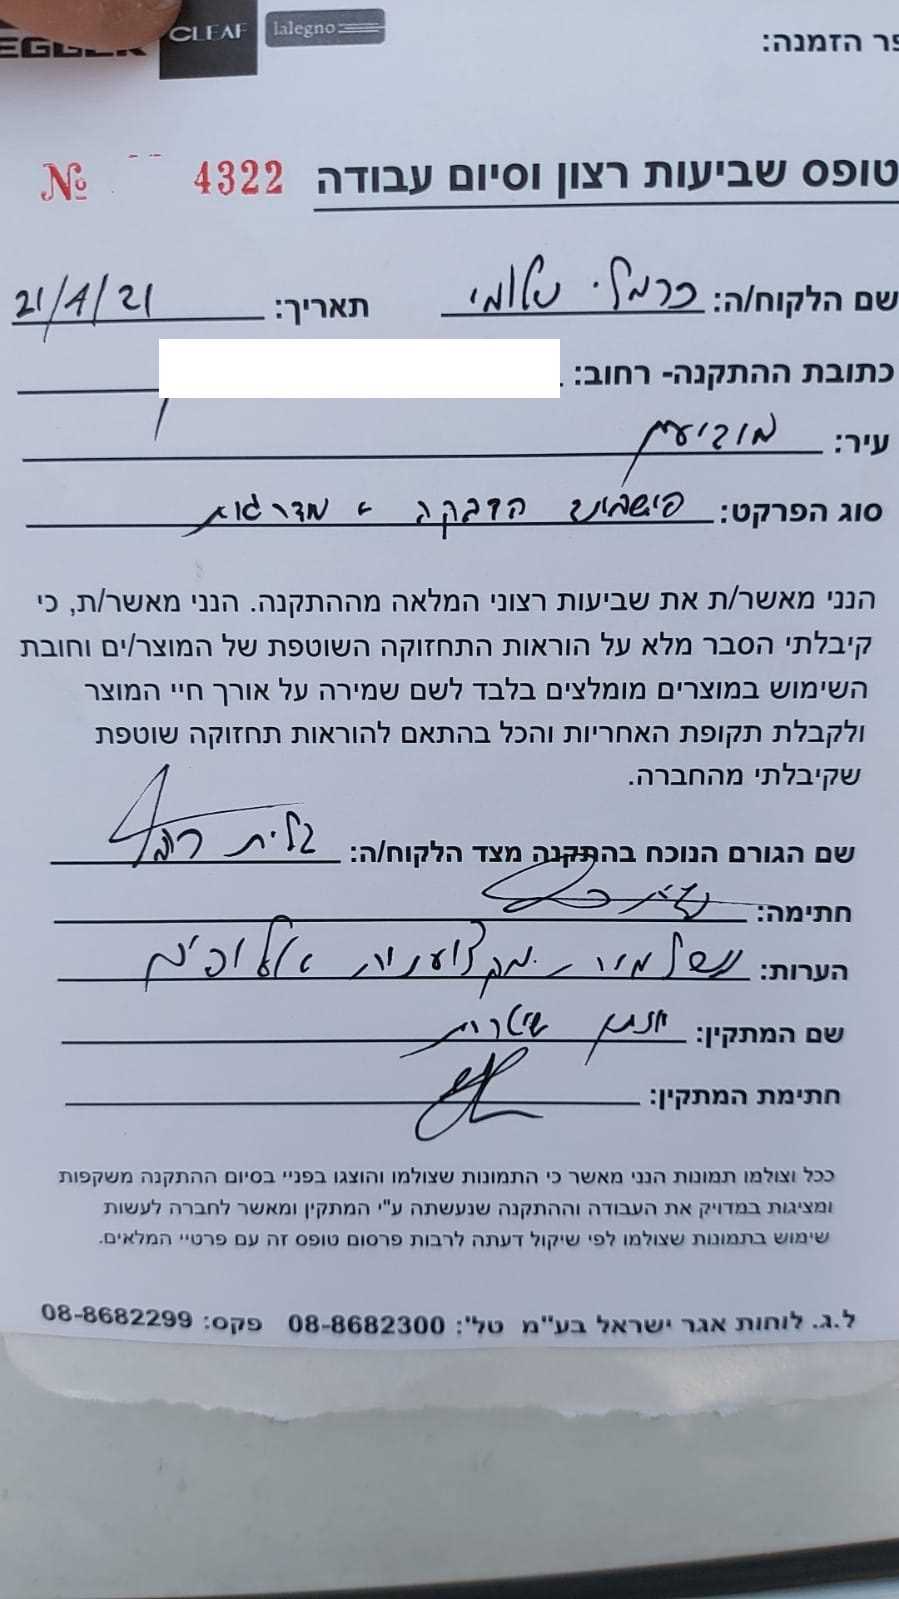 EGGER CLEAF lalegno
פר הזמנה:
טופס שביעות רצון וסיום עבודה № 4322
שם הלקוח/ה: כרמלי שלומי תאריך: 21/4/21
כתובת ההתקנה- רחוב:
עיר: מודיעין
סוג הפרקט: פישבון הדבקה + מדרגות
הנני מאשר/ת את שביעות רצוני המלאה מההתקנה. הנני מאשר/ת, כי
קיבלתי הסבר מלא על הוראות התחזוקה השוטפת של המוצר/ים וחובת
השימוש במוצרים מומלצים בלבד לשם שמירה על אורך חיי המוצר
ולקבלת תקופת האחריות והכל בהתאם להוראות תחזוקה שוטפת
שקיבלתי מהחברה.
שם הגורם הנוכח בהתקנה מצד הלקוח/ה: גלית
חתימה:
הערות: מקצועיות אלופים
שם המתקין:
חתימת המתקין:
ככל וצולמו תמונות הנני מאשר כי התמונות שצולמו והוצגו בפניי בסיום ההתקנה משקפות
ומציגות במדויק את העבודה וההתקנה שנעשתה ע"י המתקין ומאשר לחברה לעשות
שימוש בתמונות שצולמו לפי שיקול דעתה לרבות פרסום טופס זה עם פרטיי המלאים.
ל.ג. לוחות אגר ישראל בע"מ טל': 08-8682300 פקס: 08-8682299